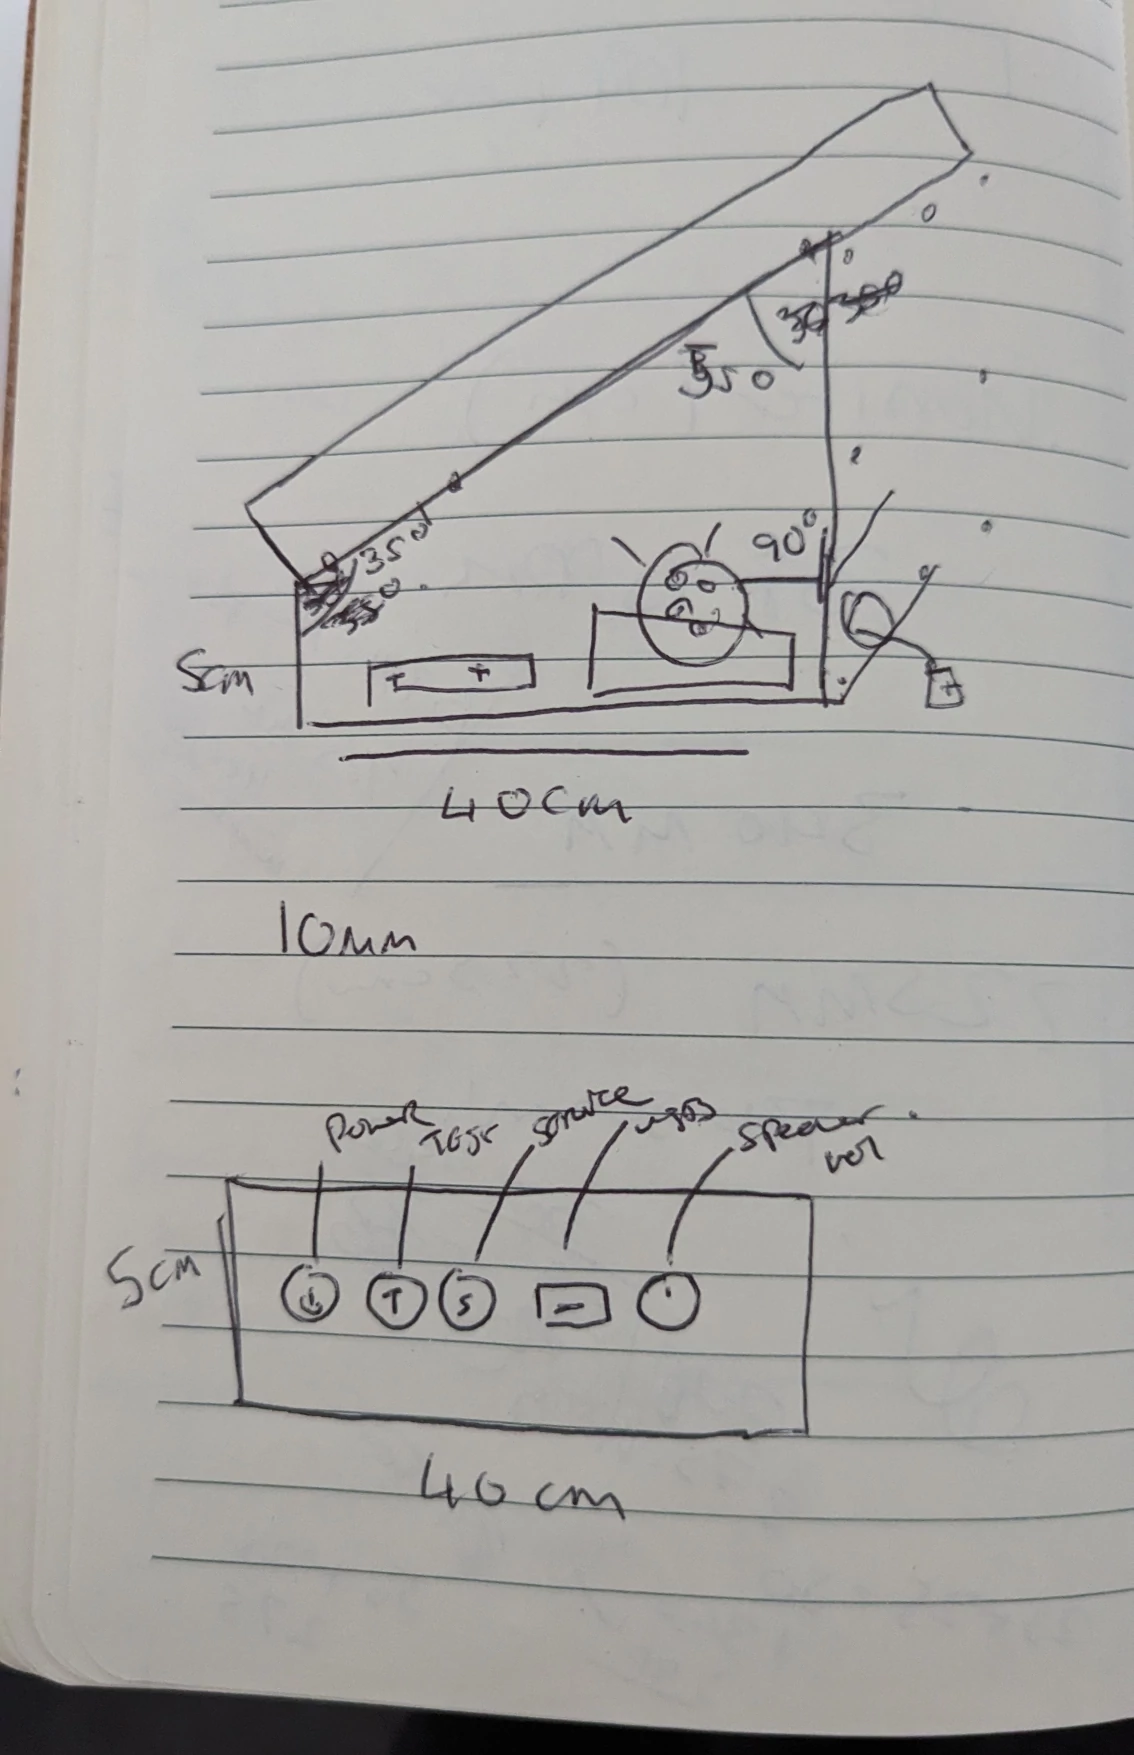 350
350
90°
5cm
- +
+
40cm
10mm
Power
Test
service
usb
speaker
vol
5cm
T S
40 cm